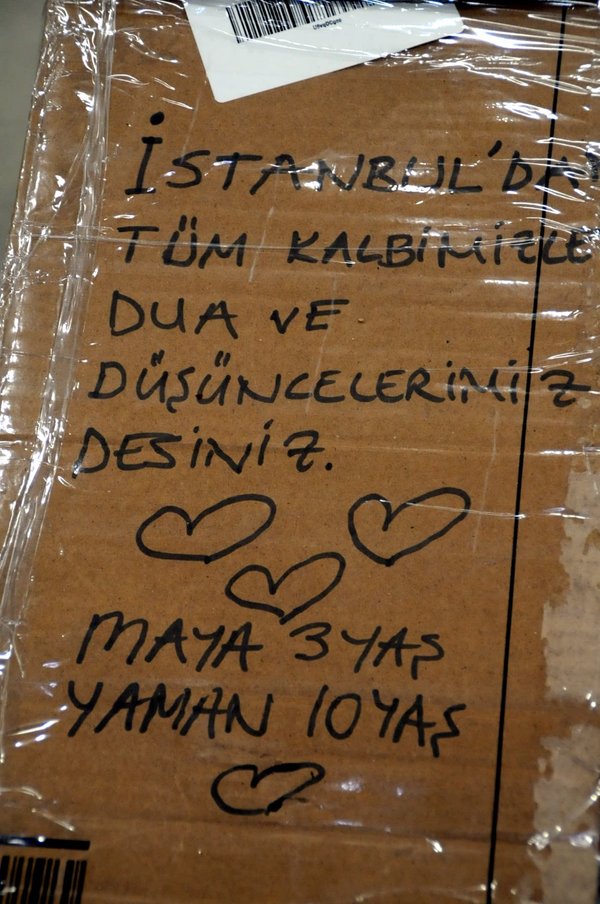 İSTANBUL'DAN
TÜM KALBİMİZLE
DUA VE
DÜŞÜNCELERİMİZ
DESİNİZ.
MAYA 3 YAŞ
YAMAN 10 YAŞ